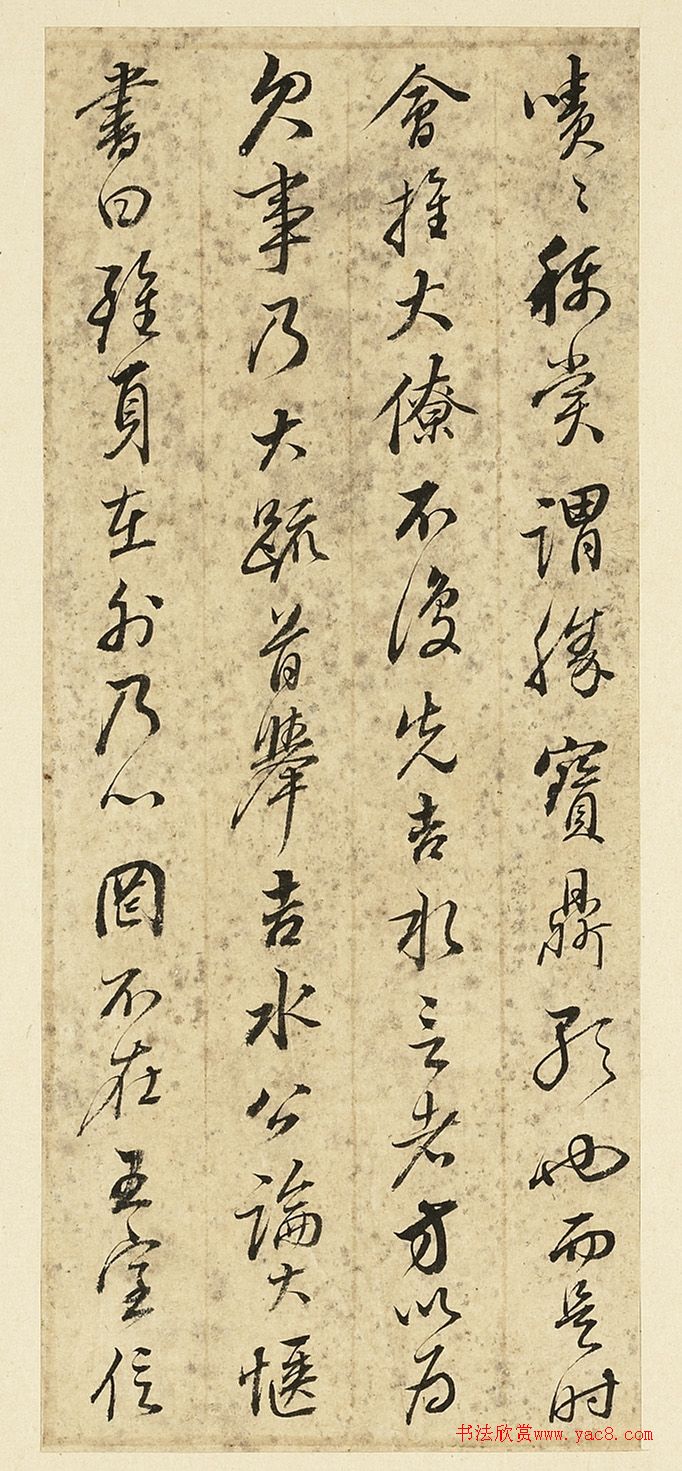 嘖〻稱赏謂勝寶鼎歌也而是时
會推大僚不復先吉水言者方以为
欠事乃大疏首舉吉水公論大愜
書曰雖身在外乃心罔不在王室信
书法欣赏www.yac8.com